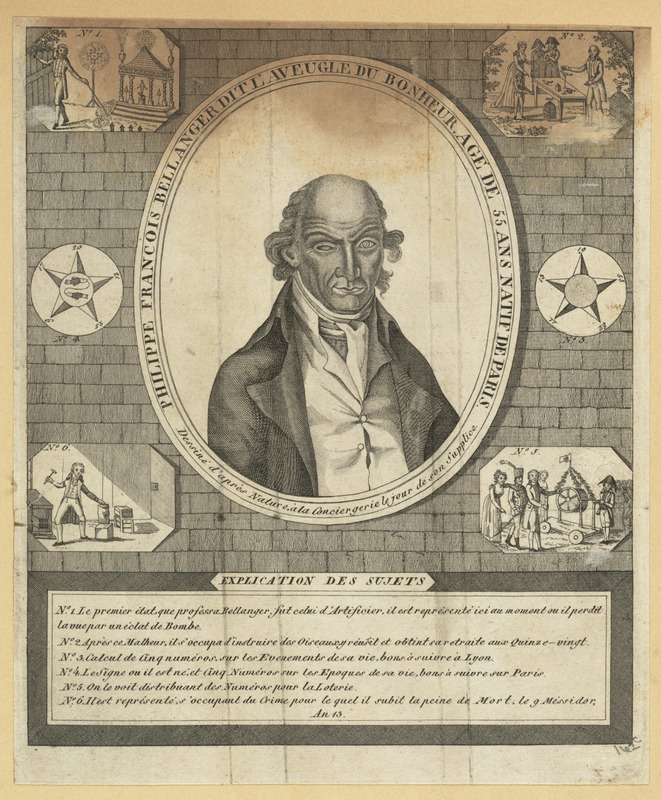 N.º 1.
N.º 2.
PHILIPPE FRANCOIS BELLANGER DIT L'AVEUGLE DU BONHEUR, AGE DE 55 ANS NATIF DE PARIS
Dessiné d'après Nature, à la Conciergerie le jour de son Supplice.
20
N.º 4.
19
N.º 3.
N.º 6.
N.º 5.
EXPLICATION DES SUJETS
N.º 1. Le premier état, que professa Bellanger, fut celui d'Artificier, il est représenté ici au moment ou il perdit
la vue par un éclat de Bombe.
N.º 2 Après ce Malheur, il s'occupa d'instruire des Oiseaux, y réusit et obtint sa retraite aux Quinze-vingt.
N.º 3. Calcul de Cinq numéros, sur les Evenements de sa vie, bons à suivre à Lyon.
N.º 4. Le Signe ou il est né, et Cinq Numéros sur les Epoques de sa vie, bons à suivre sur Paris.
N.º 5. On le voit distribuant des Numéros pour la Loterie.
N.º 6. Il est représenté, s'occupant du Crime pour le quel il subit la peine de Mort, le 9 Méssidor,
An 13.